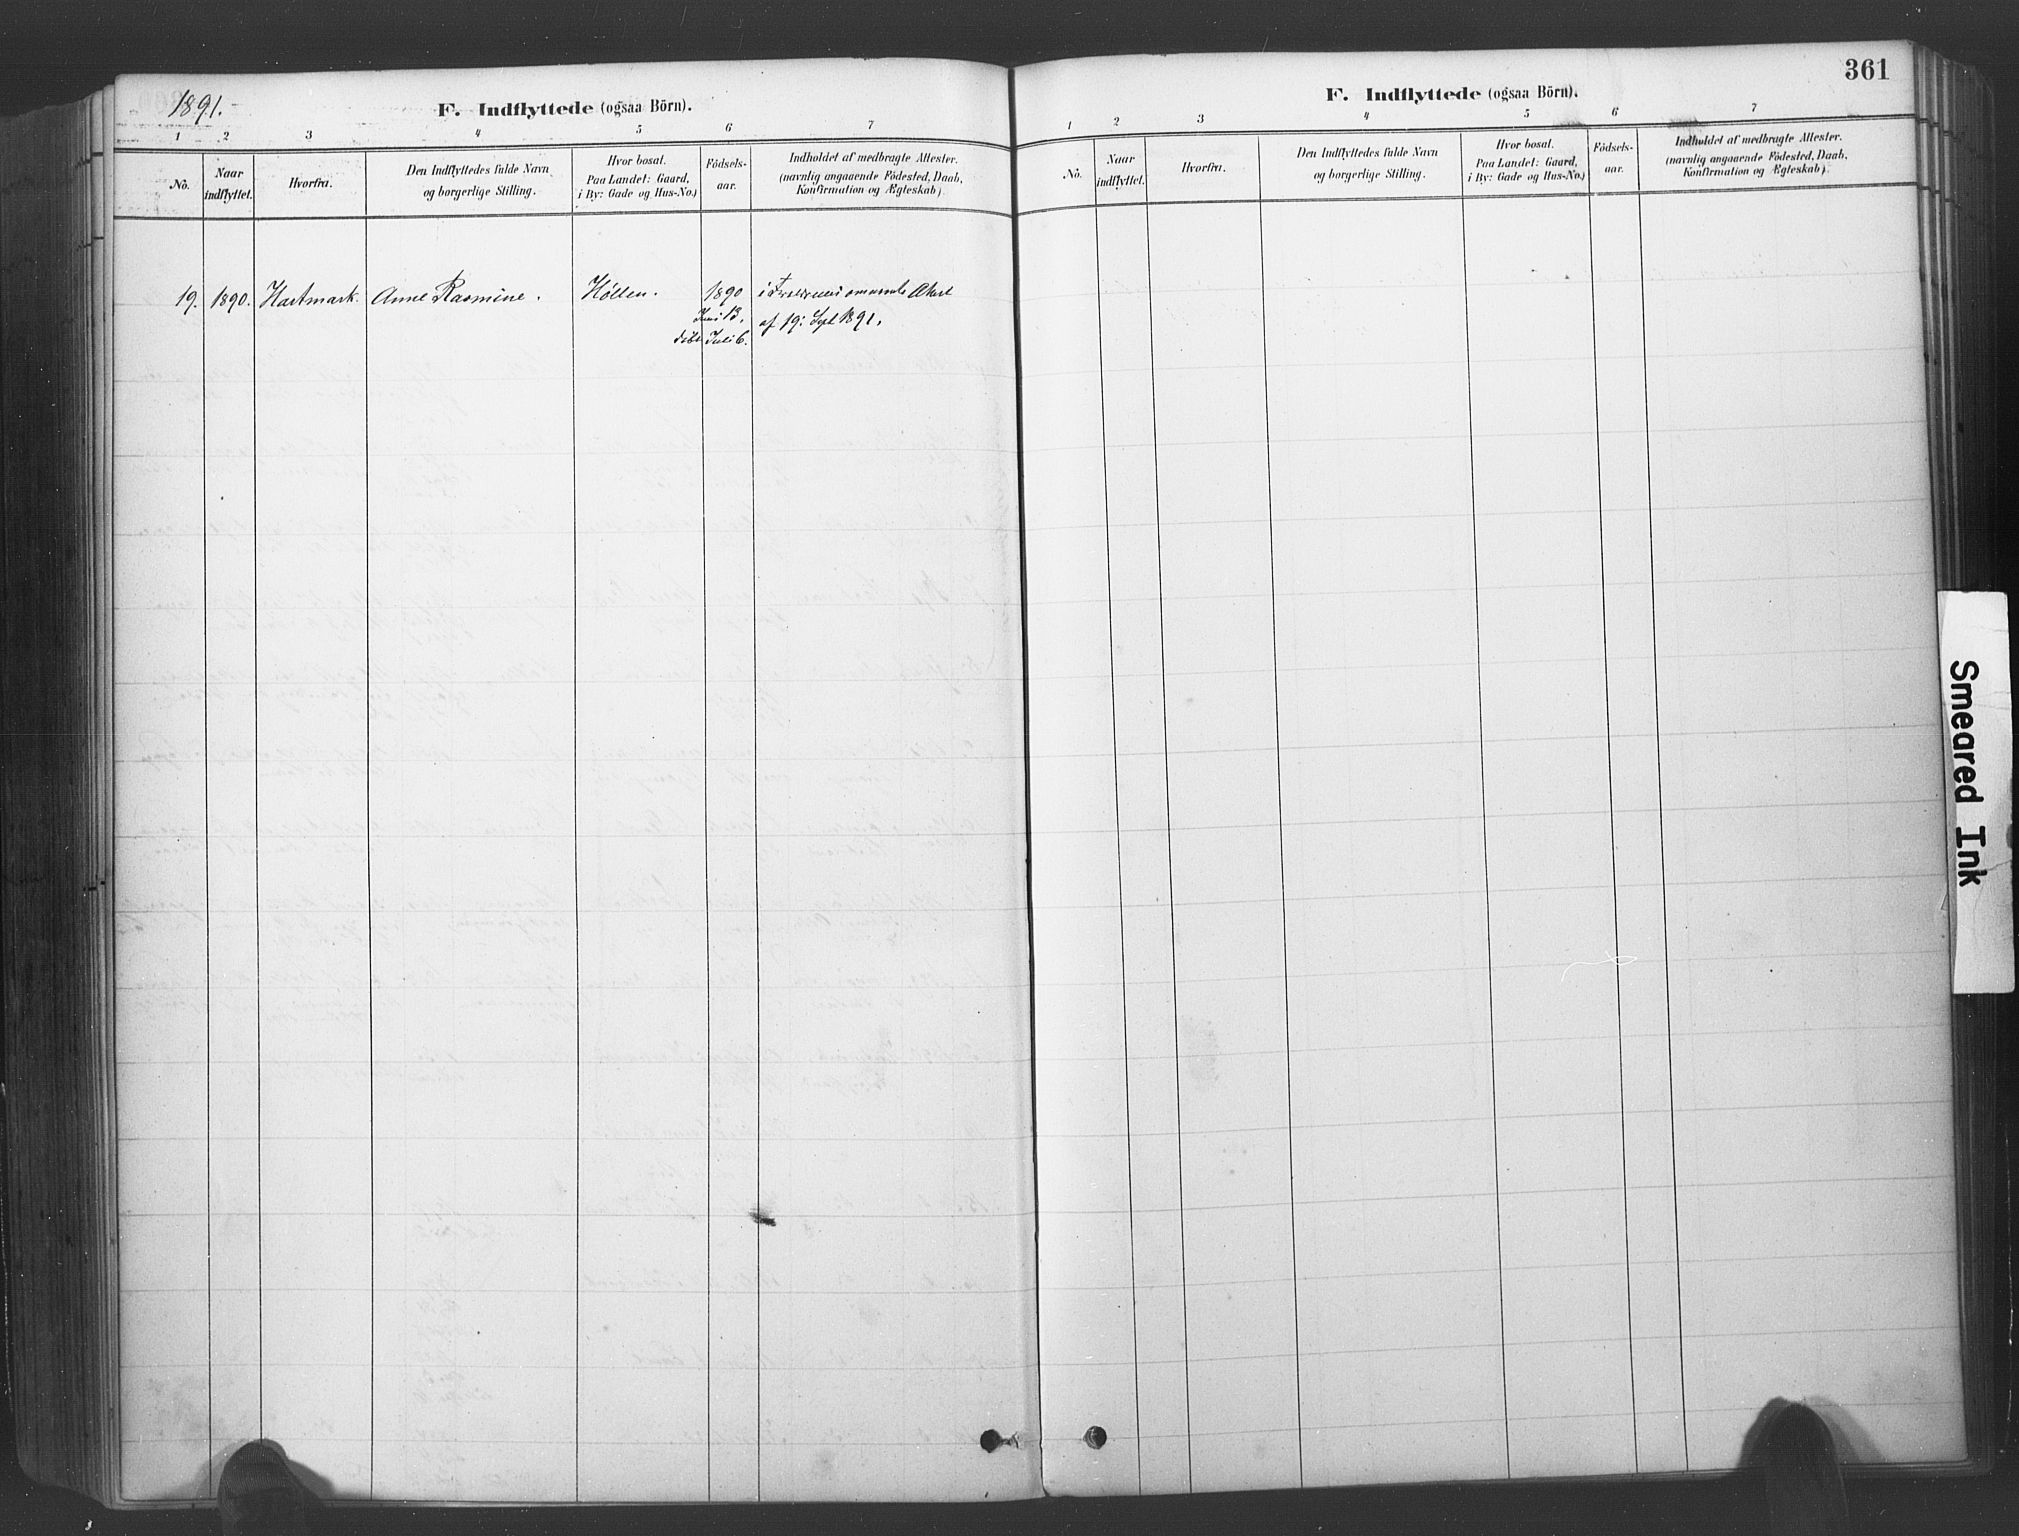 1891.
F. Indflyttede (ogsaa Börn).
1 2 3 4 5 6 7
No.
Naar indflyttet.
Hvorfra.
Den Indflyttedes fulde Navn
og borgerlige Stilling.
Hvor bosat.
Paa Landet: Gaard,
i By: Gade og Hus-No.)
Födsels-
aar.
Indholdet af medbragte Attester.
(navnlig angaaende Födested, Daab,
Konfirmation og Ægteskab)
19. 1890. Hartmark. Anne Rasmine. Hölen. 1890
Juni 13.
döbt Juli 6.
Attest
af 19: Sept 1891.
361
F. Indflyttede (ogsaa Börn).
1 2 3 4 5 6 7
No.
Naar
indflyttet.
Hvorfra.
Den Indflyttedes fulde Navn
og borgerlige Stilling.
Hvor bosat.
Paa Landet: Gaard,
i By: Gade og Hus-No.)
Födsels-
aar.
Indholdet af medbragte Attester.
(navnlig angaaende Födested, Daab,
Konfirmation og Ægteskab)
Smeared Ink